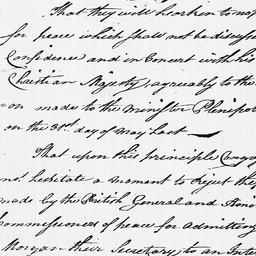 That they will hearken to no p
for peace which shall not be discuss
Confidence and in Concert with his
Christian Majesty, agreeably to the
=on made to the Minister Plenipot
on the 31st day of May last —
That upon this principle Congre
not hesitate a moment to reject the
made by the British General and Hono
Commissioners of peace for admitting
Morgan their Secretary, to an Inte